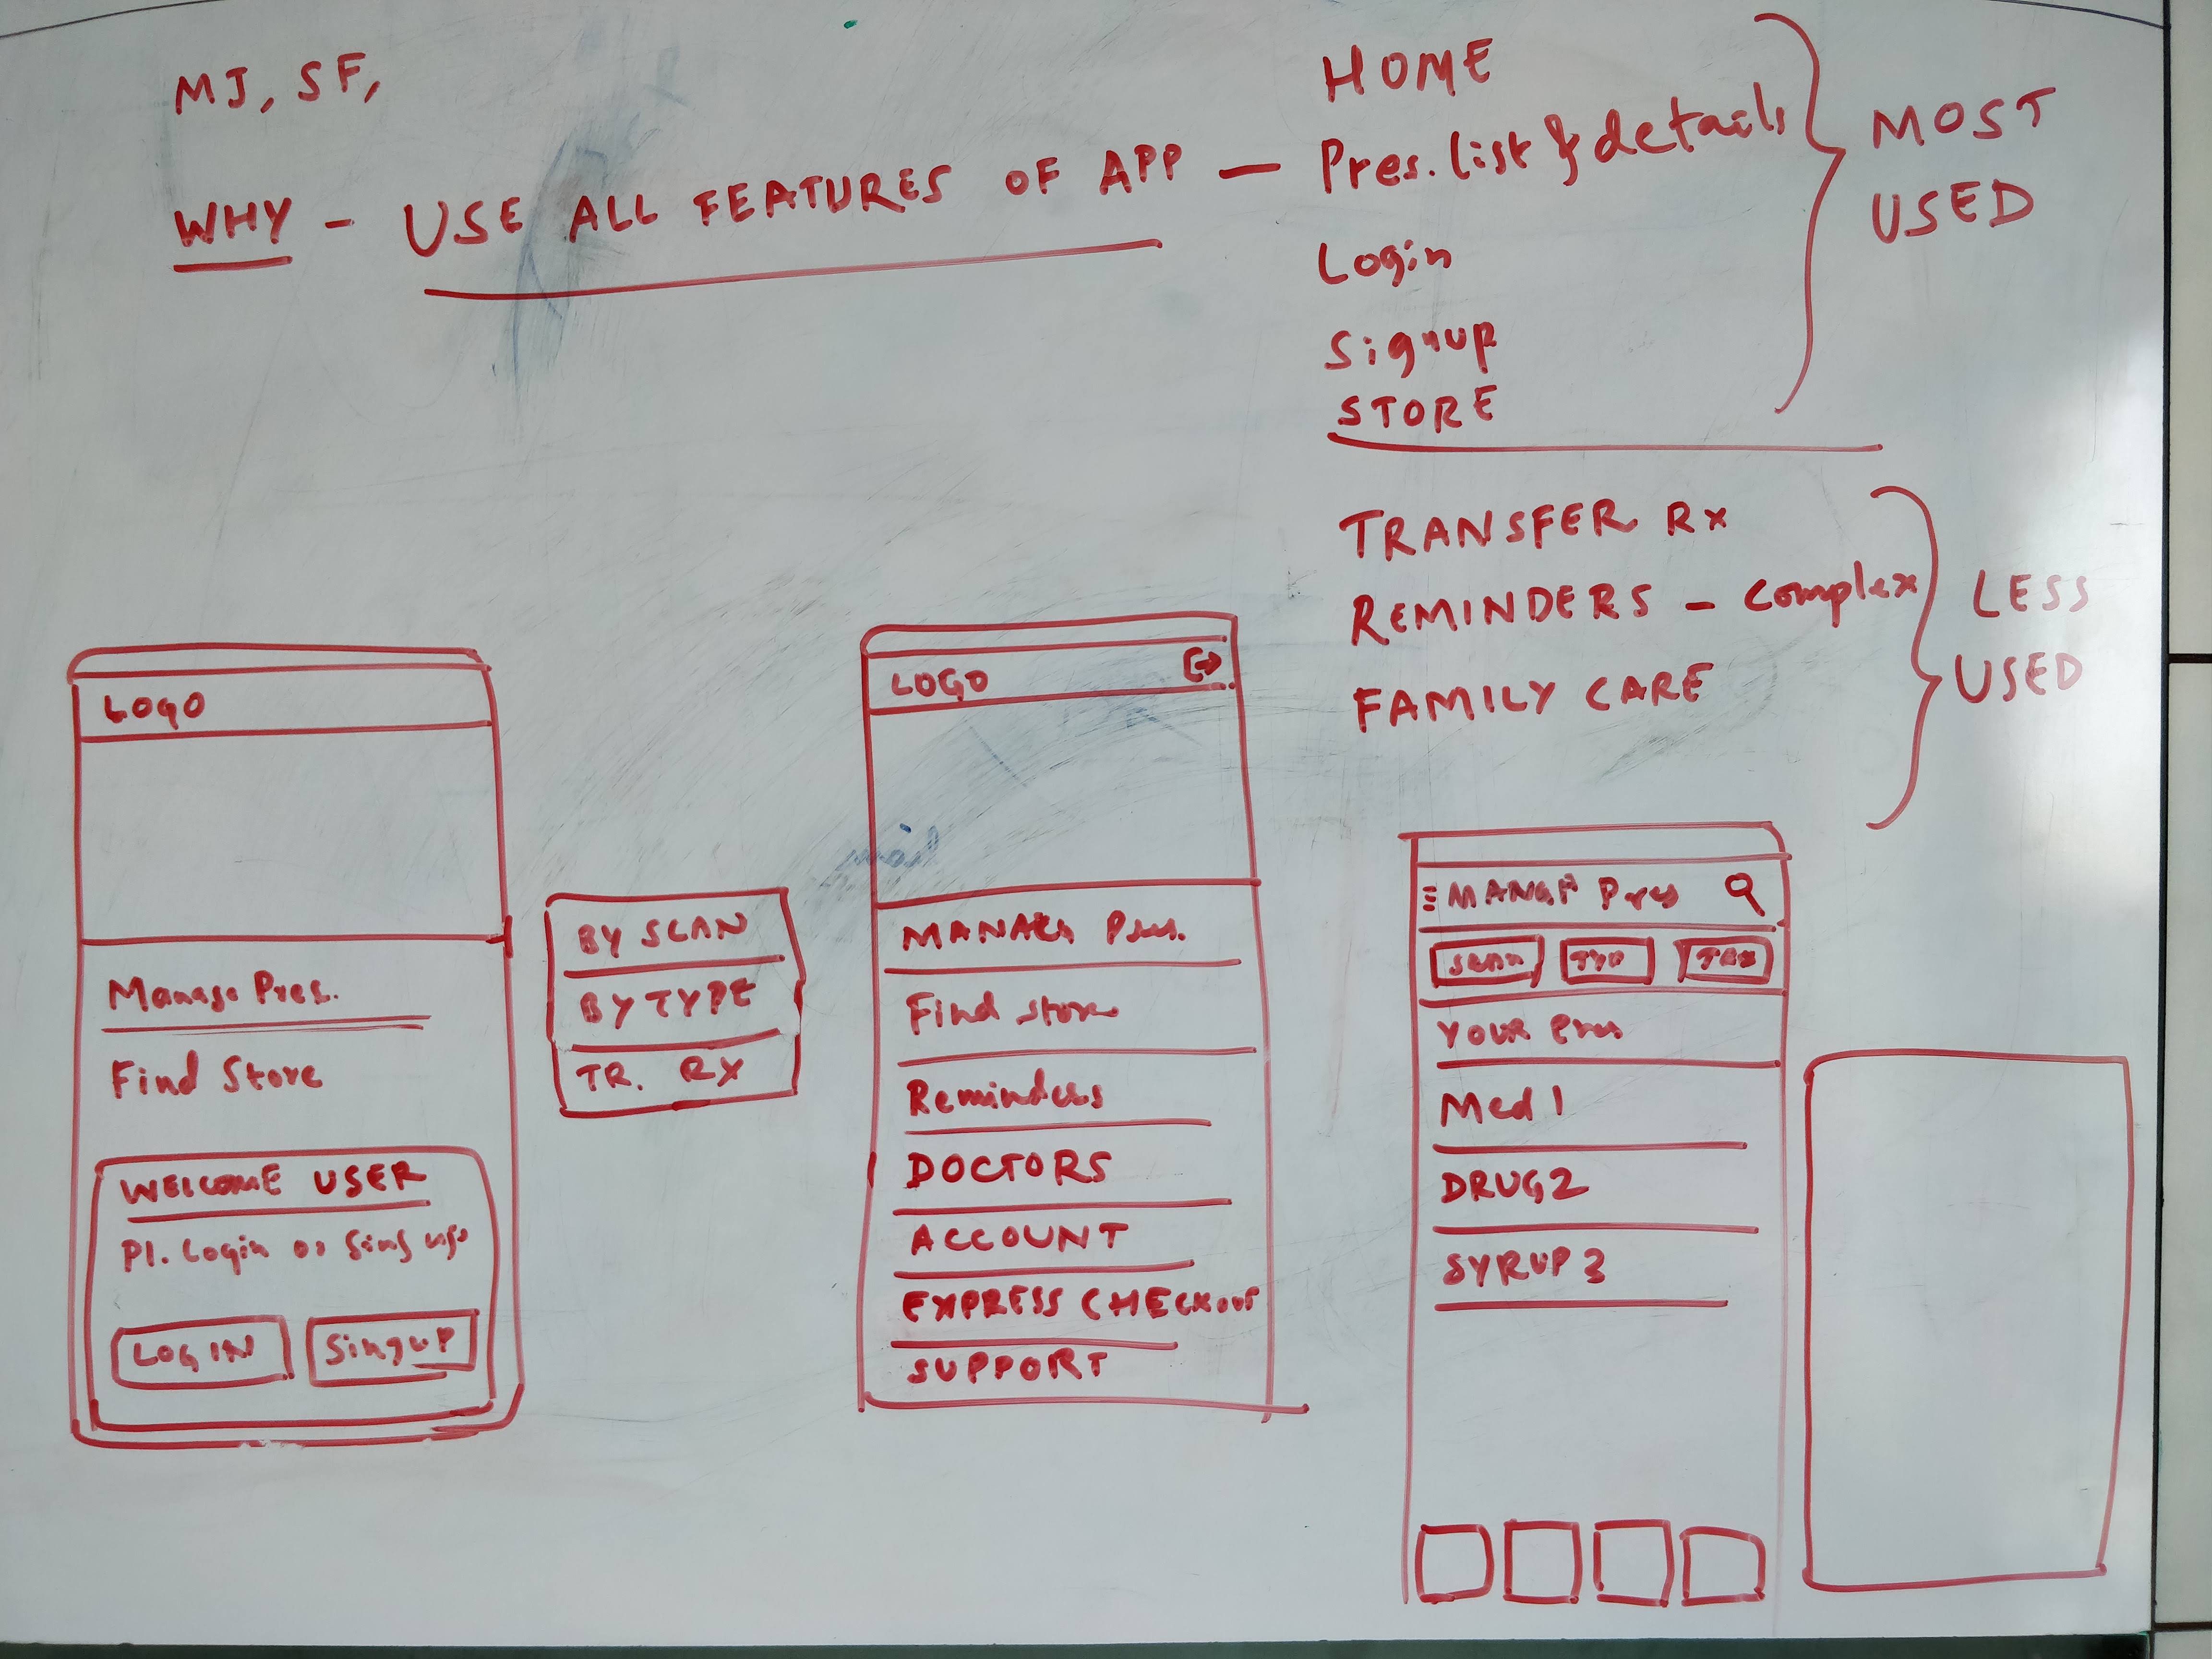 MJ, SF,
WHY - USE ALL FEATURES OF APP -
HOME
Pres. list & details
Login
Signup
STORE
MOST
USED
TRANSFER Rx
REMINDERS - Complex
FAMILY CARE
LESS
USED
LOGO
Manage Pres.
Find Store
WELCOME USER
Pl. Login or
LOGIN
Singup
BY SCAN
BY TYPE
TR. RX
LOGO
Pres.
Find store
Reminders
DOCTORS
ACCOUNT
EXPRESS CHECKout
SUPPORT
Pres
SCAN
TRX
YOUR Pres
Med 1
DRUG 2
SYRUP 3